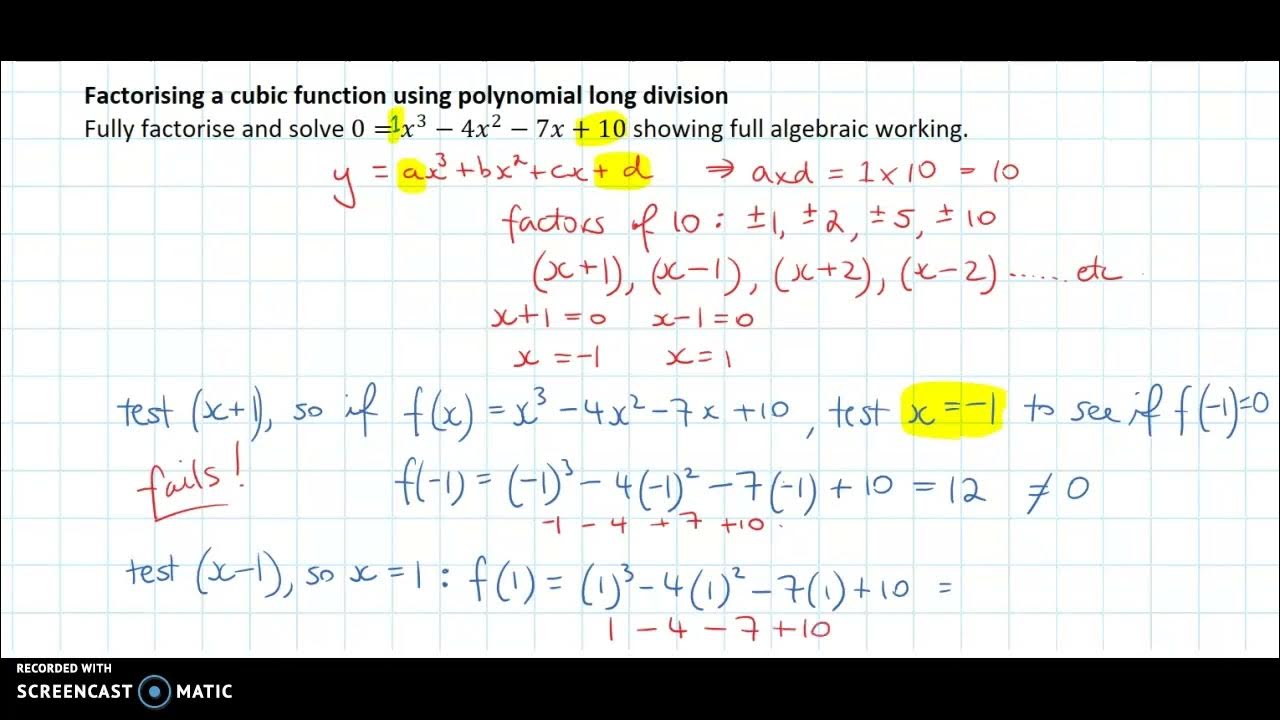 Factorising a cubic function using polynomial long division
Fully factorise and solve 0 = 1x³ − 4x² − 7x + 10 showing full algebraic working.
y = ax³ + bx² + cx + d ⇒ a×d = 1 × 10 = 10
factors of 10 : ±1, ±2, ±5, ±10
(x+1), (x−1), (x+2), (x−2) ...... etc
x+1=0 x−1=0
x = −1 x = 1
test (x+1), so if f(x) = x³ − 4x² − 7x + 10, test x = −1 to see if f(−1)=0
fails! f(−1) = (−1)³ − 4(−1)² − 7(−1) + 10 = 12 ≠ 0
−1 − 4 + 7 + 10
test (x−1), so x = 1 : f(1) = (1)³ − 4(1)² − 7(1) + 10 =
1 − 4 − 7 + 10
RECORDED WITH
SCREENCAST MATIC